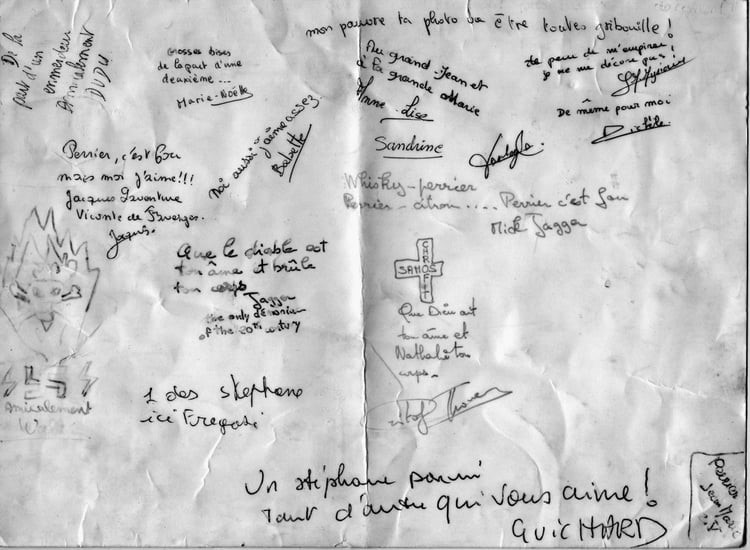 mon pauvre ta photo va être toutes gribouille !
De la
part d'un
emmerdeur
Amicalement
DUDU
Grosses bises
de la part d'une
deuxième ...
Marie-Noëlle
Au grand Jean et
à la grande Marie
Anne-Lise
de peur de m'empirer
je me decore pas !
De même pour moi
Sandrine
Moi aussi j'aime assez
Babette
Perrier, c'est fou
mais moi j'aime !!!
Jacques Laventure
Vicomte de
Jacques.
Whisky-perrier
Perrier-citron..... Perrier c'est fou
Mick Jagger
Que le diable ait
ton âme et brûle
ton corps
Jagger
the only demonian
of the 20th century
CHRIST
SAMOS
Que Dieu ait
ton âme et
Nathalie ton
corps.
Amicalement
1 des stephane
ici
Un stéphane parmi
tant d'autre qui vous aime !
GUICHARD
Jean Marie